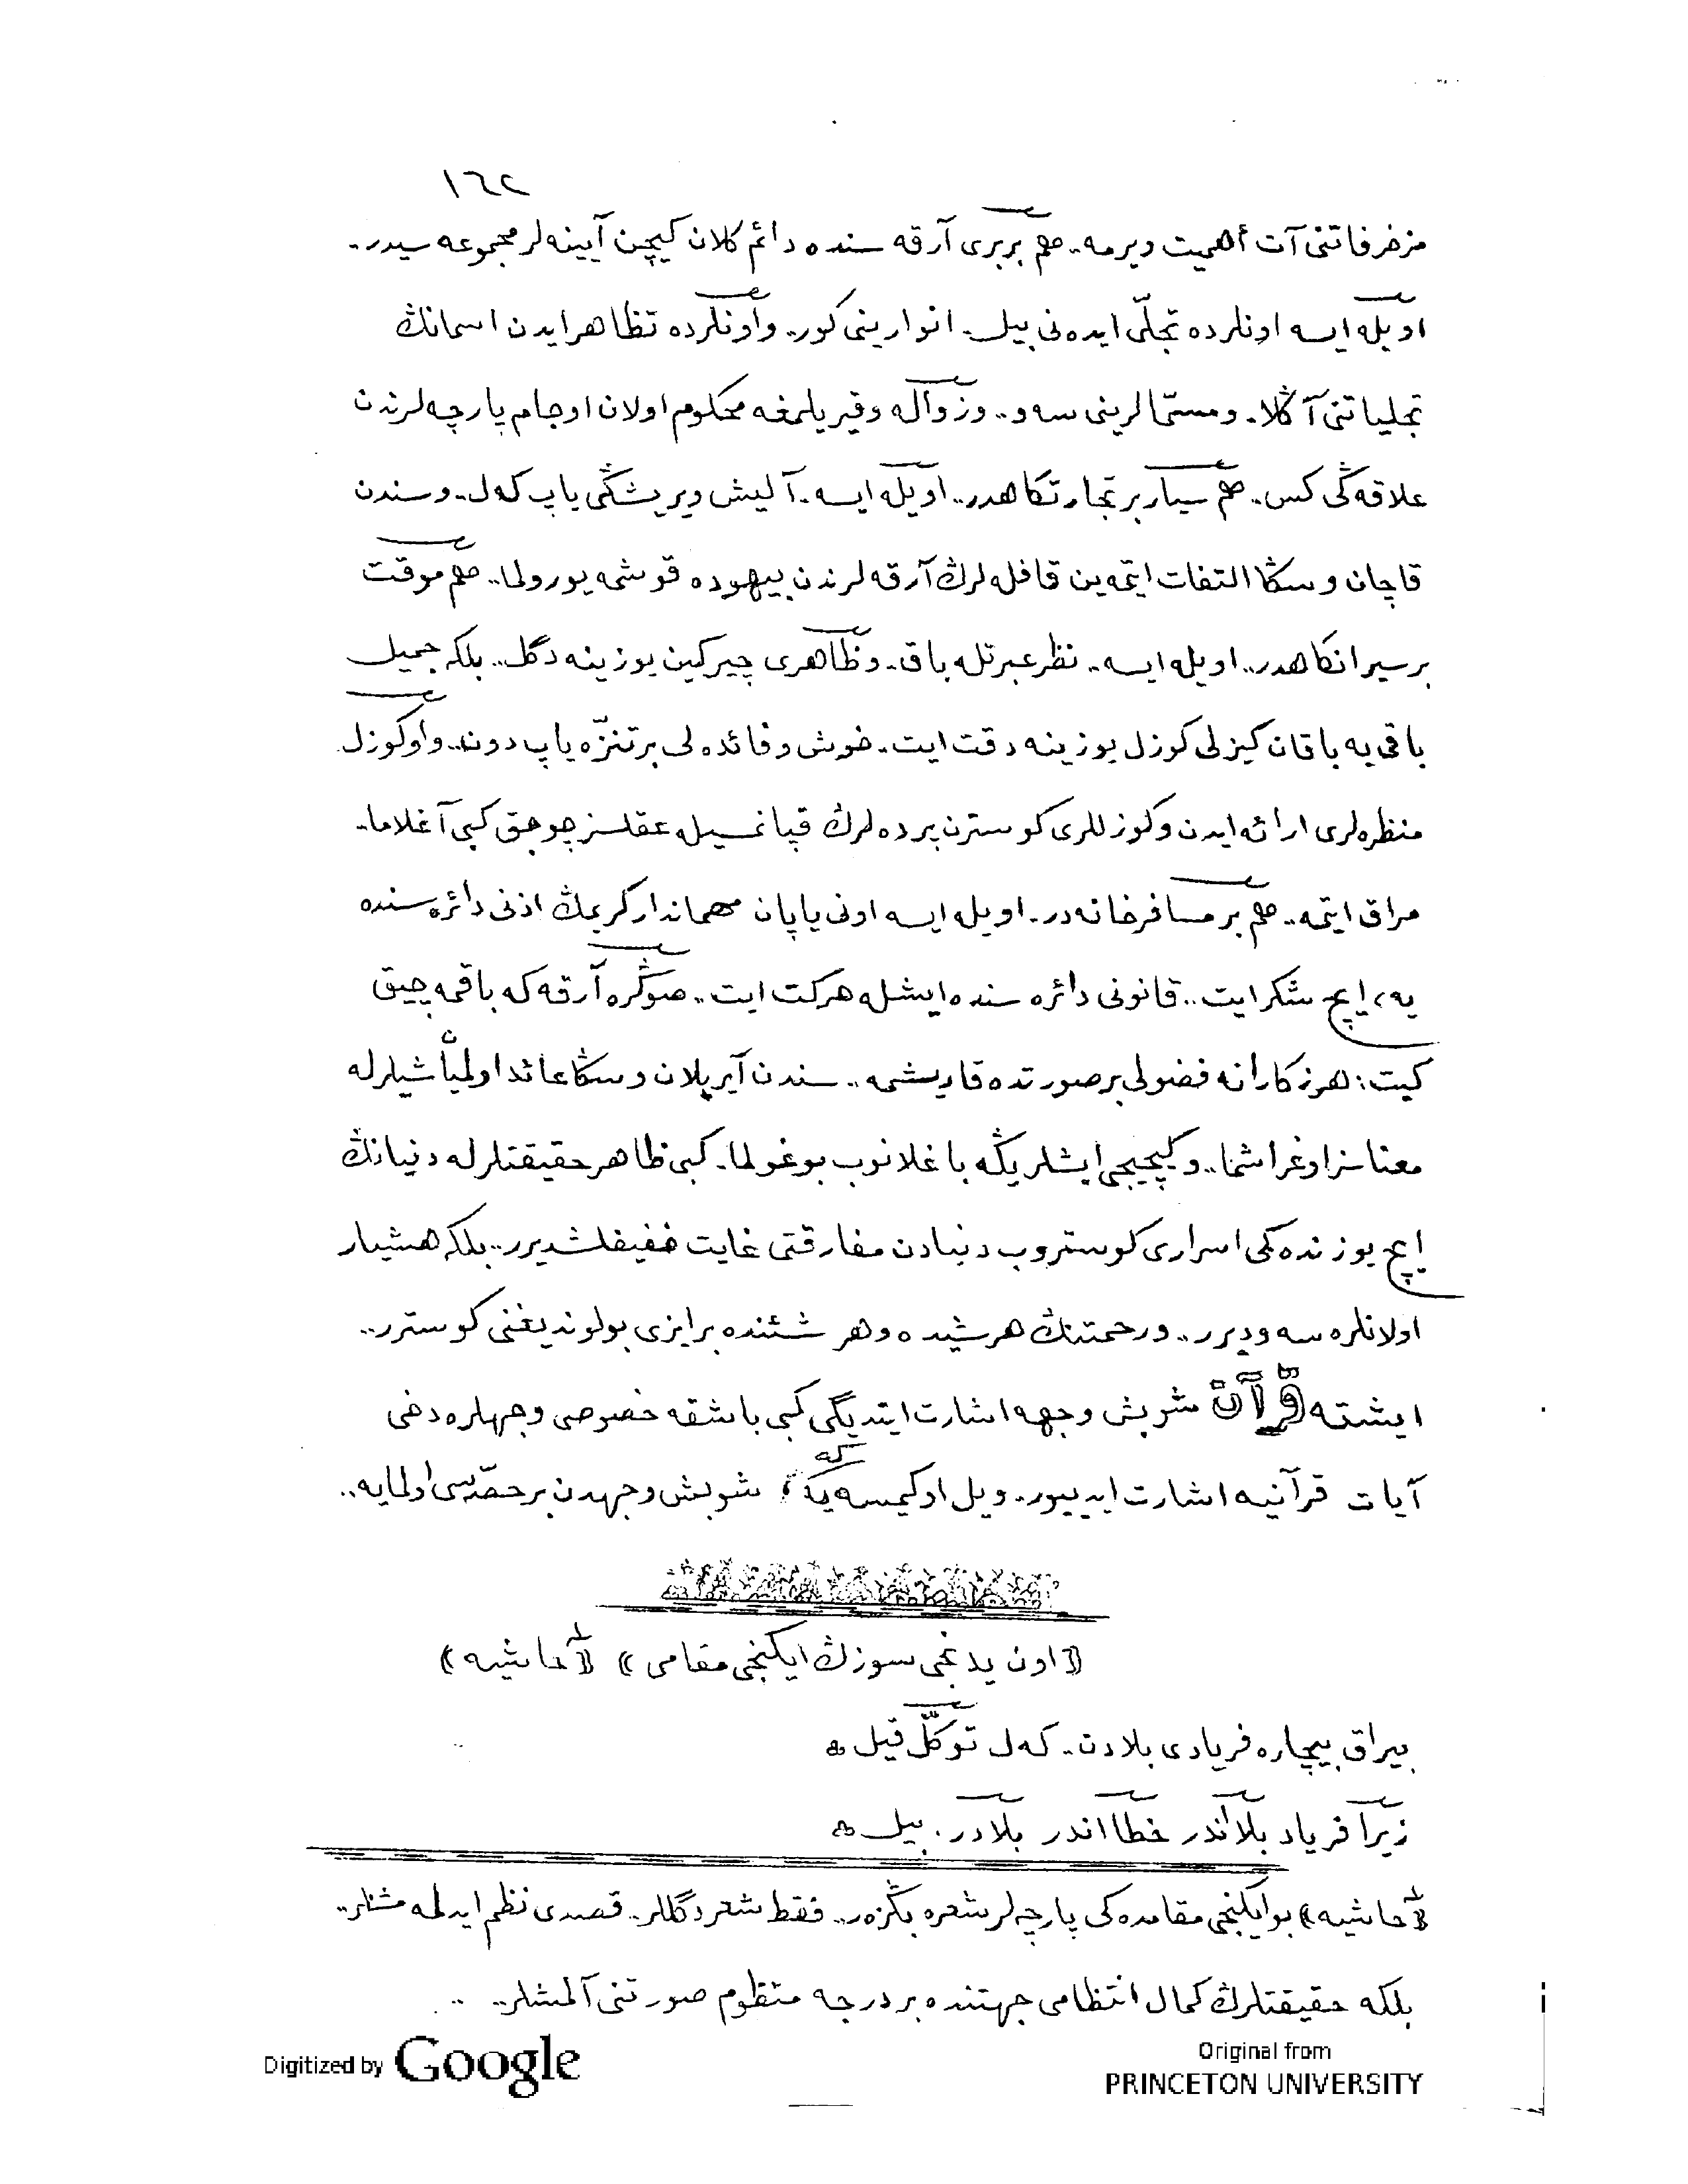 ١٦٢
مزخرفاتنى آت أهميت ويرمه.. هم بربرى آرقه سنده دائم كلان كيچن آيينه لر مجموعه سيدر..
اويله ايسه اونلرده تجلّى ايده نى بيل. انوارينى كور.. واونلرده تظاهر ايدن اسمانڭ
تجلياتنى آڭلا. ومسمّالرينى سه و.. وزواله وقيريلمغه محكوم اولان اوجام پارچه لرندن
علاقه ڭى كس.. هم سيار بر تجارتكاهدر.. اويله ايسه.. آليش ويريشڭى ياپ كه ل.. وسندن
قاچان وسڭا التفات ايتمه ين قافله لرڭ آرقه لرندن بيهوده قوشمه يورولما.. هم موقت
بر سيرانكاهدر.. اويله ايسه.. نظر عبرتله باق.. وظاهرى چيركين يوزينه دگل.. بلكه جميل
باقى يه باقان كيزلى كوزل يوزينه دقت ايت.. خوش وفائده لى بر تنزّه ياپ دون.. واوكوزل
منظره لرى ارائه ايدن وكوزللرى كوسترن پرده لرڭ قپانمسيله عقلسز چوجق كبى آغلاما..
مراق ايتمه.. هم بر مسافرخانه در.. اويله ايسه اونى ياپان مهماندار كريمڭ اذنى دائره سنده
يه، ايچ شكر ايت.. قانونى دائره سنده ايشله هركت ايت.. صوڭره آرقه كه باقمه چيق
كيت: هرزكارانه فضولى بر صورتده قاريشمه.. سندن آيريلان وسڭا عائد اولميان شيلرله
معناسز اوغراشما.. وكيچيجى ايشلريڭه باغلانوب بوغولما. كبى ظاهر حقيقتلرله دنيانڭ
ايچ يوزنده كى اسرارى كوستروب دنيادن مفارقتى غايت خفيفلشديرر.. بلكه هشيار
اولانلره سه وديرر.. ورحمتنڭ هرشيده وهر شئنده برايزى بولونديغنى كوسترر..
ايشته قرآن شوبش وجهه اشارت ايتديگى كبى باشقه خصوصى وجهلره دخى
آيات قرآنيه اشارت ايدييور.. ويل اوكيمسه يه كه؛ شوبش وجهدن بر حصّه سى اولمايه..
﴿اون يدنجى سوزڭ ايكنجى مقامى﴾ ﴿١ حاشيه﴾
بيراق بيچاره فريادى بلادن. كه ل توكّل قيل ۞
زيرا فرياد بلااندر خطااندر بلادر. بيل ۞
﴿١ حاشيه﴾ بوايكنجى مقامده كى پارچه لر شعره بڭزر.. فقط شعر دگللر.. قصدى نظم ايدلمه مشلر..
بلكه حقيقتلرڭ كمال انتظامى جهتنده بر درجه منظوم صورتنى آلمشلر..
Digitized by Google
Original from
PRINCETON UNIVERSITY